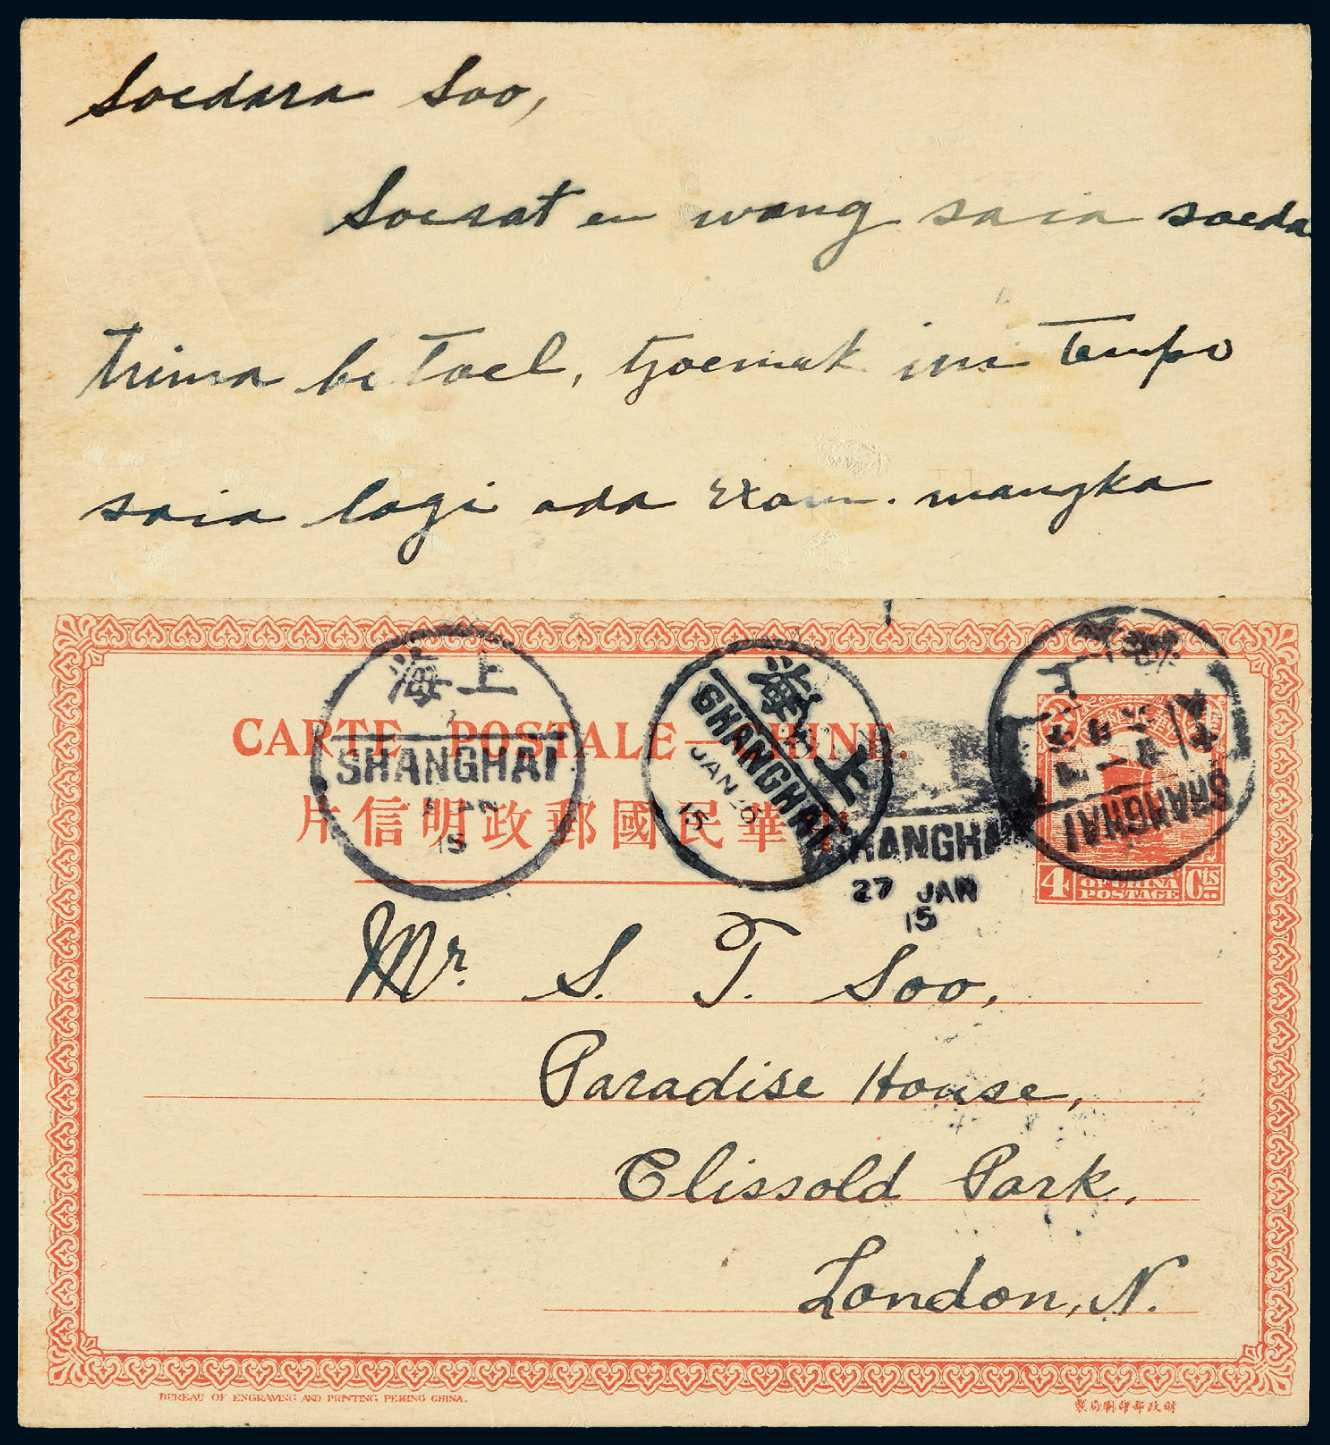 Soedara Soo,
Soerat en wang saia soeda
trima betoel, tjoemak ini tempo
saia lagi ada exam. mangka
上海
SHANGHAI
15
上海
SHANGHAI
JAN
15
SHANGHAI
27 JAN
15
上海
SHANGHAI
CARTE POSTALE—CHINE.
中華民國郵政明信片
4 OF CHINA Cts
POSTAGE
Mr. S. T. Soo,
Paradise House,
Clissold Park,
London, N.
BUREAU OF ENGRAVING AND PRINTING, PEKING CHINA.
財政部印刷局製